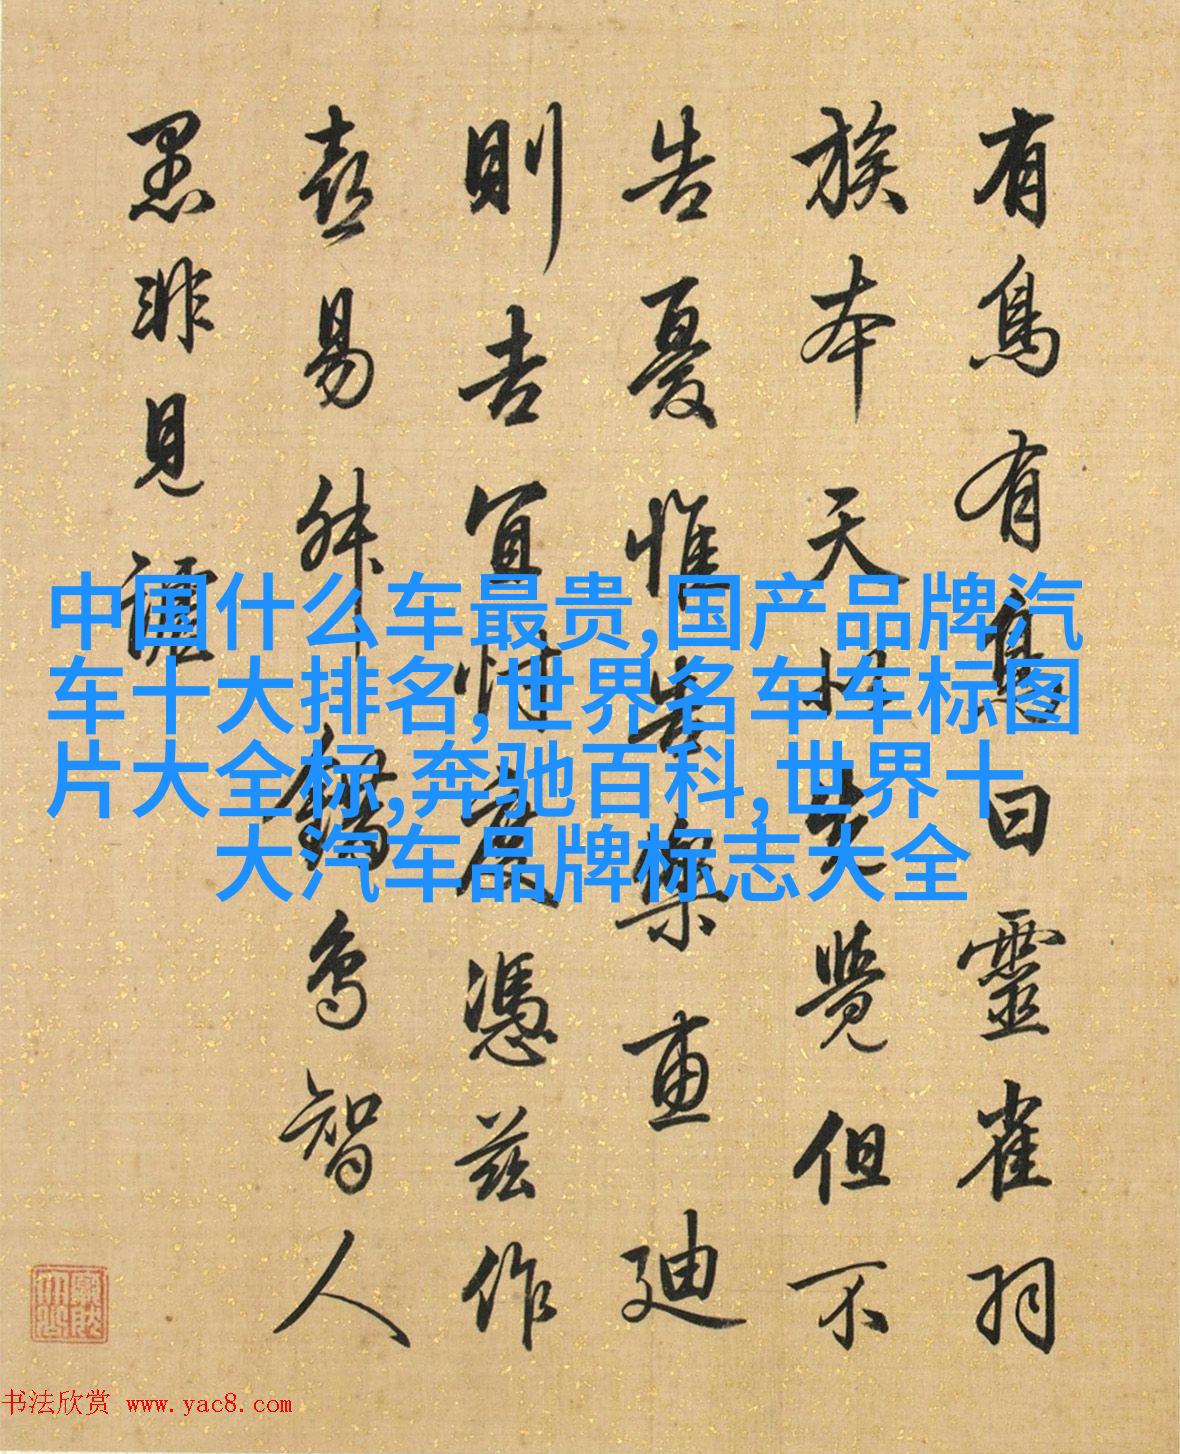 有鳥有鳥曰靈雀羽
族本天性先覺但不
告憂惟告樂惠迪
則吉宜忖度憑茲作
喜易舛鳥智人
愚非見
中国什么车最贵,国产品牌汽
车十大排名,世界名车车标图
片大全标,奔驰百科,世界十
大汽车品牌标志大全
书法欣赏 www.yac8.com